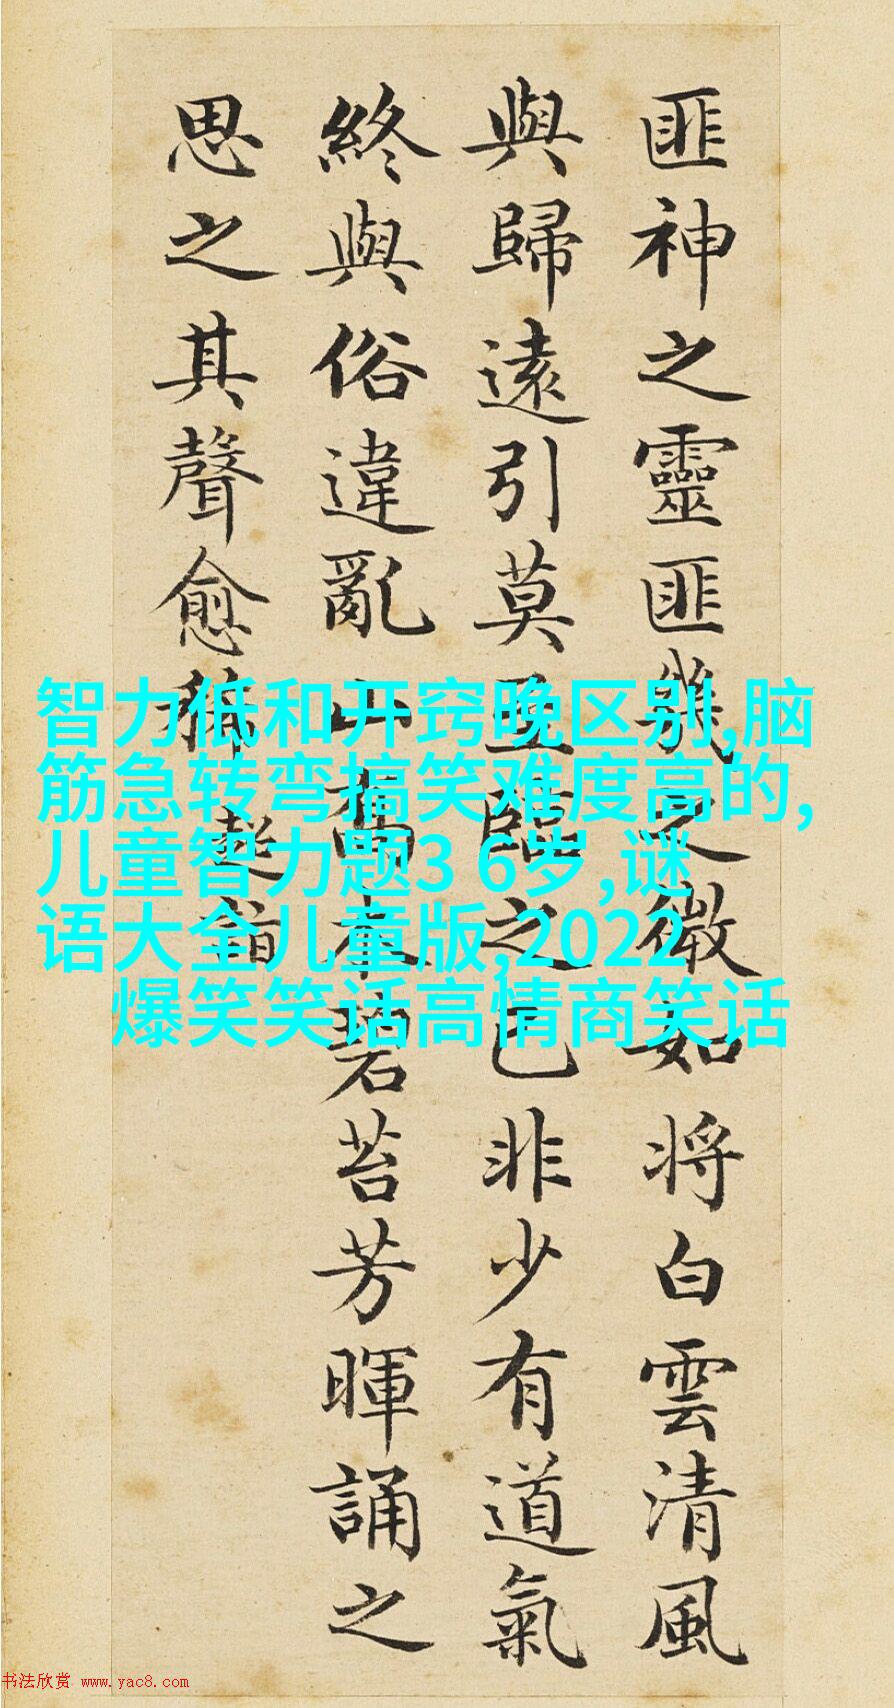 匪神之靈匪幾之微如將白雲清風
與歸遠引莫至臨之已非少有道氣
終與俗違亂山喬木碧苔芳暉誦之
思之其聲愈稀 超詣
智力低和开窍晚区别,脑
筋急转弯搞笑难度高的,
儿童智力题3 6岁,谜
语大全儿童版,2022
爆笑笑话高情商笑话
书法欣赏 www.yac8.com